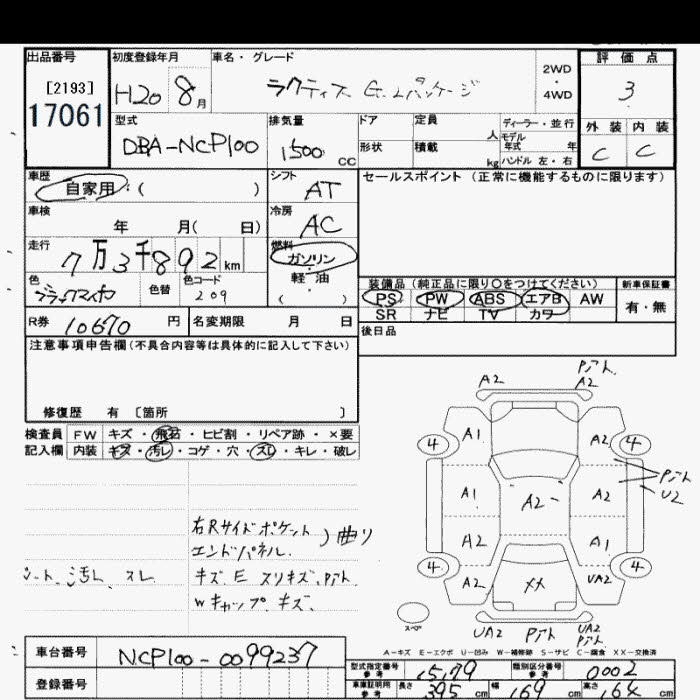 出品番号 初度登録年月 車名・グレード 2WD ・ 4WD 評価点
[2193]
17061
H20 8月
ラクティス G.Lパッケージ
3
型式 排気量 ドア 定員 人 ディーラー・並行
モデル年式 年
外装 内装
DBA-NCP100
1500 CC
形状 積載 kg ハンドル 左・右
C C
車歴 シフト セールスポイント (正常に機能するものに限ります)
自家用 ( )
AT
車検 冷房
年 月( 日)
AC
走行 燃料
7万3千892km
ガソリン・
軽・油
( )
色 色替 色コード
ブラックマイカ 209
装備品 (純正品に限り○をつけてください) 新車保証書
PS PW ABS エアB AW 有・無
SR ナビ TV カワ
R券 10670 円 名変期限 月 日
後日品
注意事項申告欄 (不具合内容等は具体的に記入して下さい)
修復歴 有 〔箇所 〕
検査員 FW キズ・飛石・ヒビ割・リペア跡・×要
記入欄 内装 キズ・汚レ・コゲ・穴・スレ・キレ・破レ
A2 A2
A1 A2
4 4
A1 A2- A2
U2
A2 A1
4 4
A2 XX UA2
UA2 UA2
スペア
右Rサイドポケット
エンドパネル. )曲り
シート、汚レ スレ
キズ E スリキズ.
Wキャップ キズ.
A-キズ E-エクボ U-凹み W-補修跡 S-サビ C-腐食 XX-交換済
車台番号 NCP100-0099237
登録番号
型式指定番号 参考 15179 類別区分番号 参考 0002
車庫証明用 参考 長さ 395 cm 幅 169 cm 高さ 164 cm